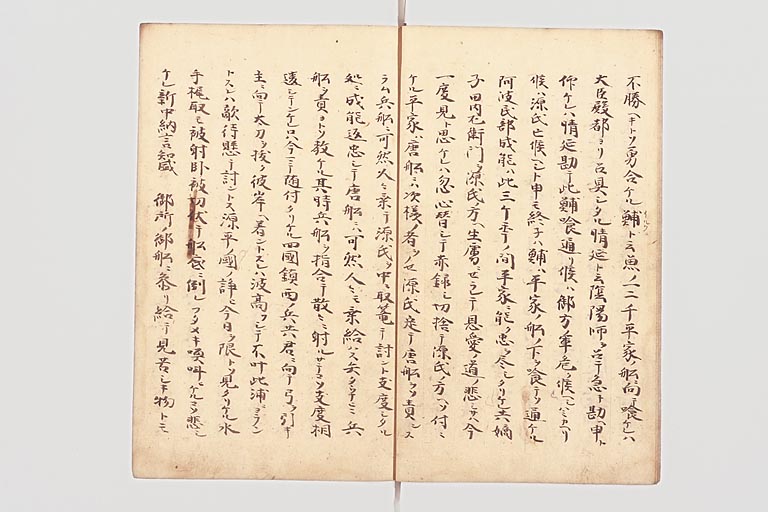 不勝ヘキトソ勇合ケル鯆ト云魚ノ一二千平家ノ船ニ向テ喰ケレハ
大臣殿都ヨリ召具シタル情延ト云陰陽師ヲ召テ急ト勘ヘ申ト
仰ケレハ情延勘テ此鯆喰通リ候ハ御方ノ軍危ク候ヘシミ入リ
候ハ源氏亡候ヘシト申モ終子ハ鯆ハ平家ノ船ノ下ヲ喰テソ通ケル
阿波民部成能ハ此三ケ年ノ間平家ニ能ク忠ヲ尽シタリケレ共嫡
子田内左衛門ヲ源氏ノ方ヘ生虜ニセラレテ恩愛ノ道ノ悲シサハ今
一度見ト思ケレハ忽心替シテ赤録シ切捨テ源氏ノ方ヘソ付ニ
ケル平家ハ唐船ニハ次様ノ者ヲノセ源氏定テ唐船ヲソ責ンス
ラム兵船ニ可然人ニ乗テ源氏ヲ中ニ取篭テ討ント支度シタル
処ニ成能返忠シテ唐船ニハ可然人ニモ乗給ハス兵タチニモ兵
船ヲ責ヨトソ教ケル其時兵船ヲ指合テ散々ニ射ルサテコソ支度相
違シテンケレ只今ニテ随付タリケル四国鎮西ノ兵共君ニ向テ弓ヲ引キ
主ニ向テ太刀ヲ抜ク彼岸ヘ着ントスレハ波高フシテ不叶此浦ヘヨラン
トスレハ敵待懸テ討ントス源平ノ国ノ諍ヒ今日ヲ限トソ見タリケル水
手梶取モ被射臥被切伏テ船底ニ倒レフタメキ喚叫ケルコソ悲シ
ケレ新中納言知盛　御所ノ御船ニ参リ給テ見苦シキ物トモ